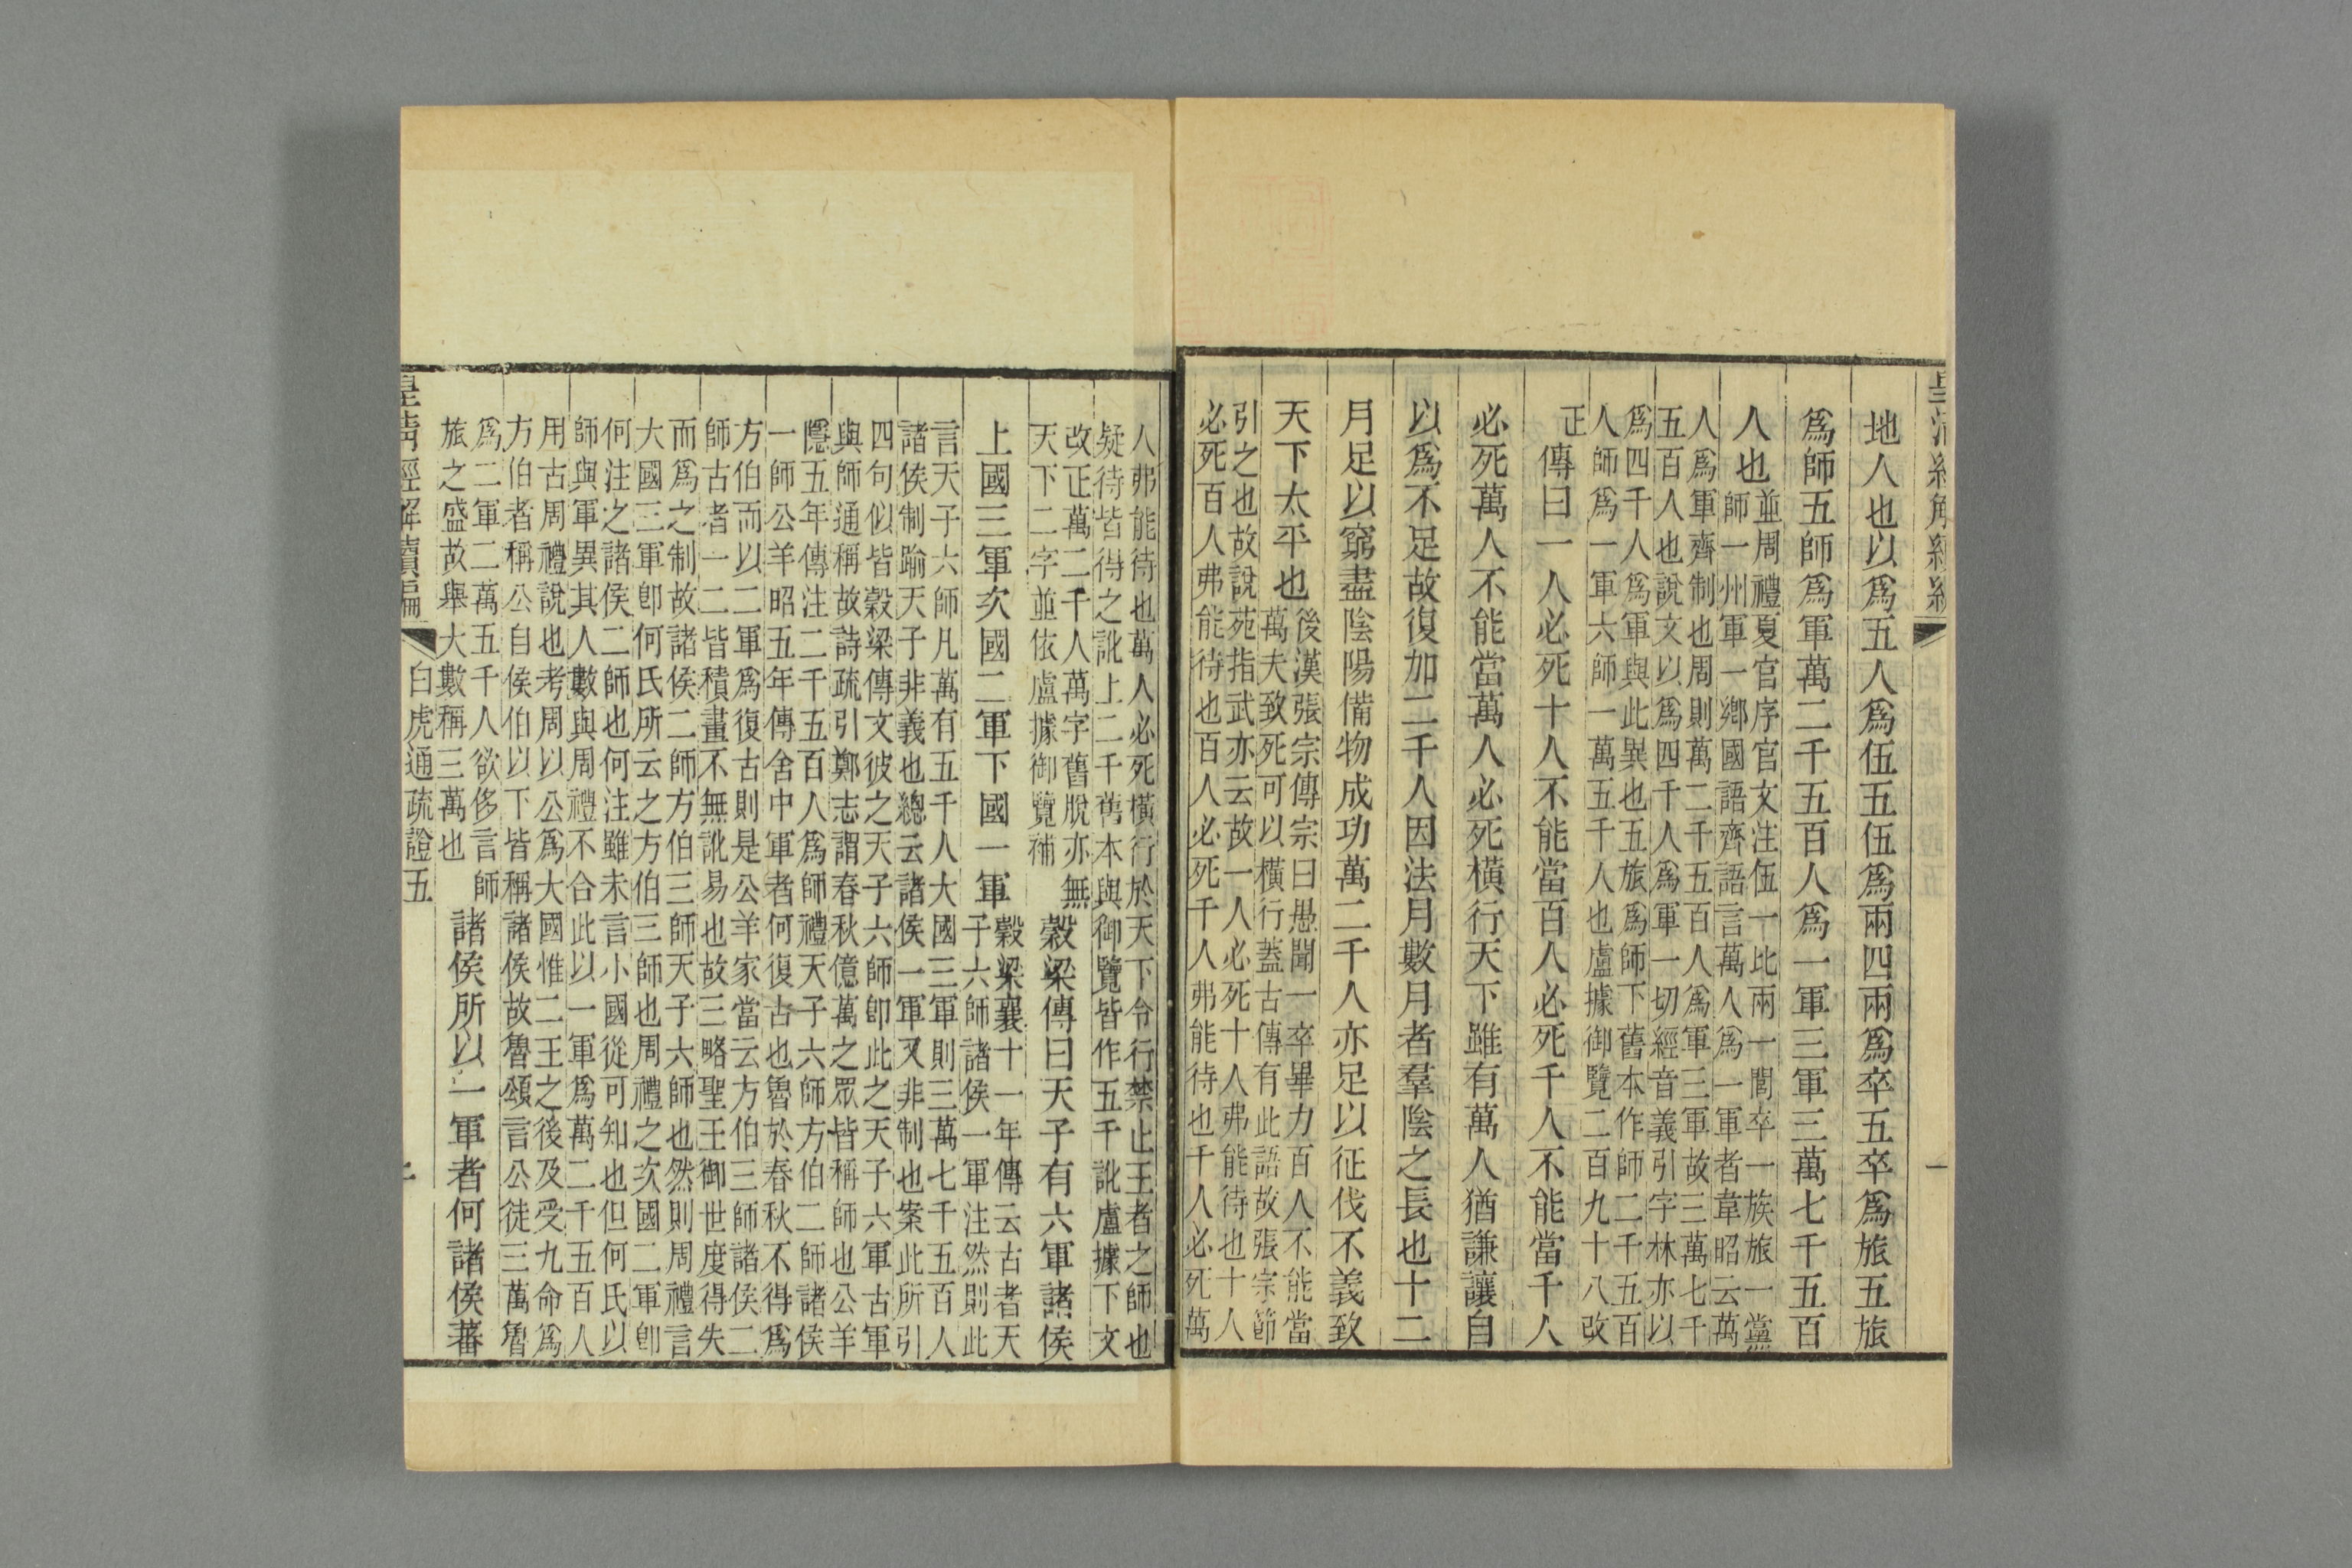 地人也以爲五人爲伍五伍爲兩四兩爲卒五卒爲旅五旅
爲師五師爲軍萬二千五百人爲一軍三軍三萬七千五百
人也
並周禮夏官序官文注伍一比兩一閭卒一族旅一黨
師一州軍一鄉國語齊語言萬人爲一軍者韋昭云萬
人爲軍齊制也周則萬二千五百人爲軍三軍故三萬七千
五百人也說文以爲四千人爲軍一切經音義引字林亦以
爲四千人爲軍與此異也五旅爲師下舊本作師二千五百
人師爲一軍六師一萬五千人也盧據御覽二百九十八改
正
傳曰一人必死十人不能當百人必死千人不能當千人
必死萬人不能當萬人必死橫行天下雖有萬人猶謙讓自
以爲不足故復加二千人因法月數月者羣陰之長也十二
月足以窮盡陰陽備物成功萬二千人亦足以征伐不義致
天下太平也
後漢張宗傳宗曰愚聞一卒畢力百人不能當
萬夫致死可以橫行蓋古傳有此語故張宗節
引之也故說苑指武亦云故一人必死十人弗能待也十人
必死百人弗能待也百人必死千人弗能待也千人必死萬
人弗能待也萬人必死橫行於天下令行禁止王者之師也
疑待皆得之訛上二千舊本與御覽皆作五千訛盧據下文
改正萬二千人萬字舊脫亦無
天下二字並依盧據御覽補
穀梁傳曰天子有六軍諸侯
上國三軍次國二軍下國一軍
穀梁襄十一年傳云古者天
子六師諸侯一軍注然則此
言天子六師凡萬有五千人大國三軍則三萬七千五百人
諸侯制踰天子非義也總云諸侯一軍又非制也案此所引
四句似皆穀梁傳文彼之天子六師卽此之天子六軍古軍
與師通稱故詩疏引鄭志謂春秋億萬之眾皆稱師也公羊
隱五年傳注二千五百人爲師禮天子六師方伯二師諸侯
一師公羊昭五年傳舍中軍者何復古也魯於春秋不得爲
方伯而以二軍爲復古則是公羊家當云方伯三師諸侯二
師古者一二皆積畫不無訛易也故三略聖王御世度得失
而爲之制故諸侯二師方伯三師天子六師也然則周禮言
大國三軍卽何氏所云之方伯三師也周禮之次國二軍卽
何注之諸侯二師也何注雖未言小國從可知也但何氏以
師與軍異其人數與周禮不合此以一軍爲萬二千五百人
用古周禮說也考周以公爲大國惟二王之後及受九命爲
方伯者稱公自侯伯以下皆稱諸侯故魯頌言公徒三萬魯
爲二軍二萬五千人欲侈言師
旅之盛故舉大數稱三萬也
諸侯所以一軍者何諸侯蕃
皇淸經解續編
白虎通疏證五